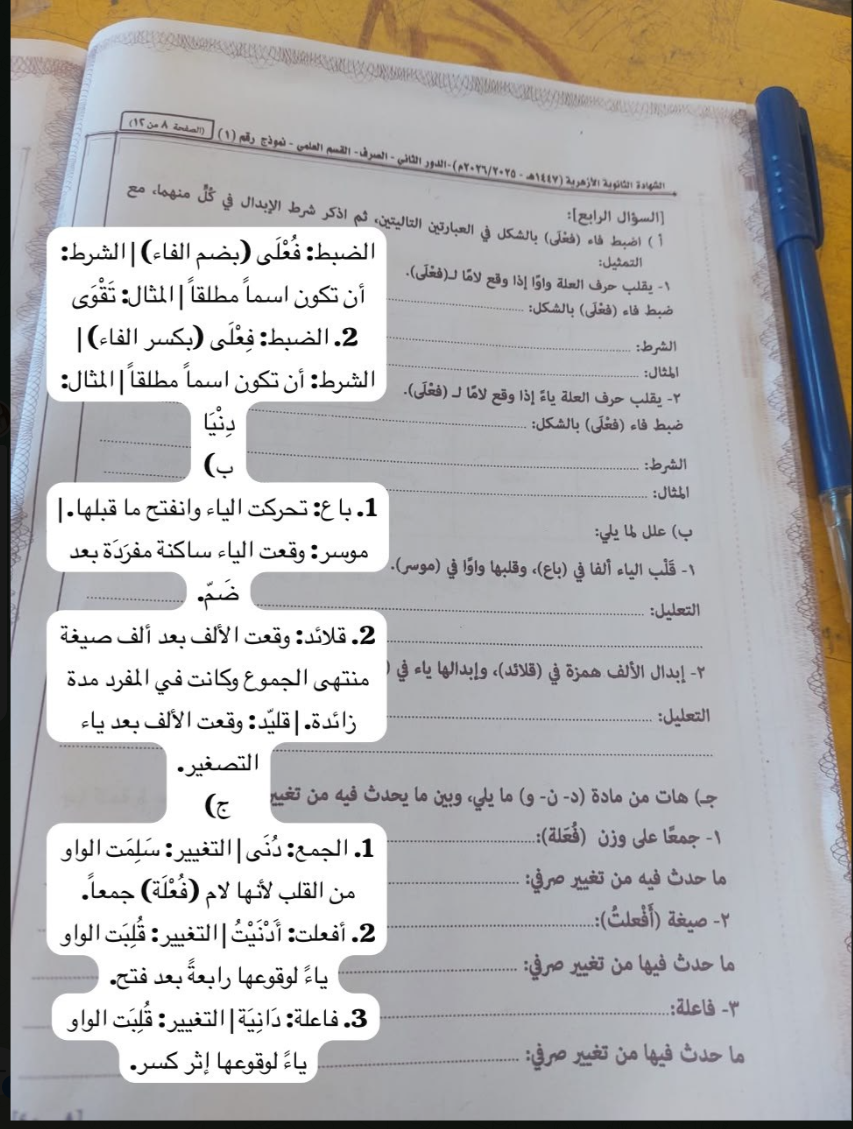 الشهادة الثانوية الأزهرية (١٤٤٧هـ - ٢٠٢٦/٢٠٢٥م) -الدور الثاني - الصرف- القسم العلمي - نموذج رقم (١) (الصفحة ٨ من ١٢)
[السؤال الرابع]:
أ ) اضبط فاء (فعْلَى) بالشكل في العبارتين التاليتين، ثم اذكر شرط الإبدال في كُلٍّ منهما، مع
التمثيل:
١- يقلب حرف العلة واوًا إذا وقع لامًا لـ(فعْلَى).
ضبط فاء (فعْلَى) بالشكل:
الشرط:
المثال:
٢- يقلب حرف العلة ياءً إذا وقع لامًا لـ (فعْلَى).
ضبط فاء (فعْلَى) بالشكل:
الشرط:
المثال:
ب) علل لما يلي:
١- قَلْب الياء ألفا في (باع)، وقلبها واوًا في (موسر).
التعليل:
٢- إبدال الألف همزة في (قلائد)، وإبدالها ياء في (
التعليل:
جـ) هات من مادة (د- ن- و) ما يلي، وبين ما يحدث فيه من تغيير
١- جمعًا على وزن (فُعَلة):
ما حدث فيه من تغيير صرفي:
٢- صيغة (أَفْعلتُ):
ما حدث فيها من تغيير صرفي:
٣- فاعلة:
ما حدث فيها من تغيير صرفي:
الضبط: فُعْلَى (بضم الفاء) | الشرط:
أن تكون اسماً مطلقاً | المثال: تَقْوَى
2. الضبط: فِعْلَى (بكسر الفاء) |
الشرط: أن تكون اسماً مطلقاً | المثال:
دِنْيَا
ب)
1. باع: تحركت الياء وانفتح ما قبلها. |
موسر: وقعت الياء ساكنة مفرَدَة بعد
ضَمّ.
2. قلائد: وقعت الألف بعد ألف صيغة
منتهى الجموع وكانت في المفرد مدة
زائدة. | قليّد: وقعت الألف بعد ياء
التصغير.
ج)
1. الجمع: دُنَى | التغيير: سَلِمَت الواو
من القلب لأنها لام (فُعْلَة) جمعاً.
2. أفعلت: أَدْنَيْتُ | التغيير: قُلِبَت الواو
ياءً لوقوعها رابعةً بعد فتح.
3. فاعلة: دَانِيَة | التغيير: قُلِبَت الواو
ياءً لوقوعها إثر كسر.